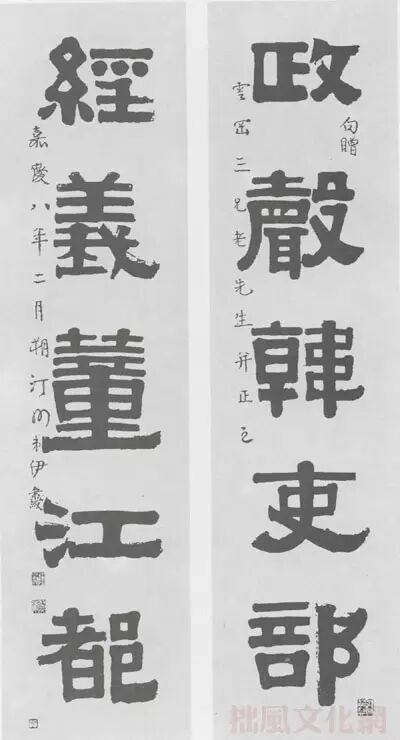 政聲韓吏部
句贈
雲三兄老先生并正之
經義董江都
嘉慶八年二月朔汀州弟伊秉綬
拙風文化網